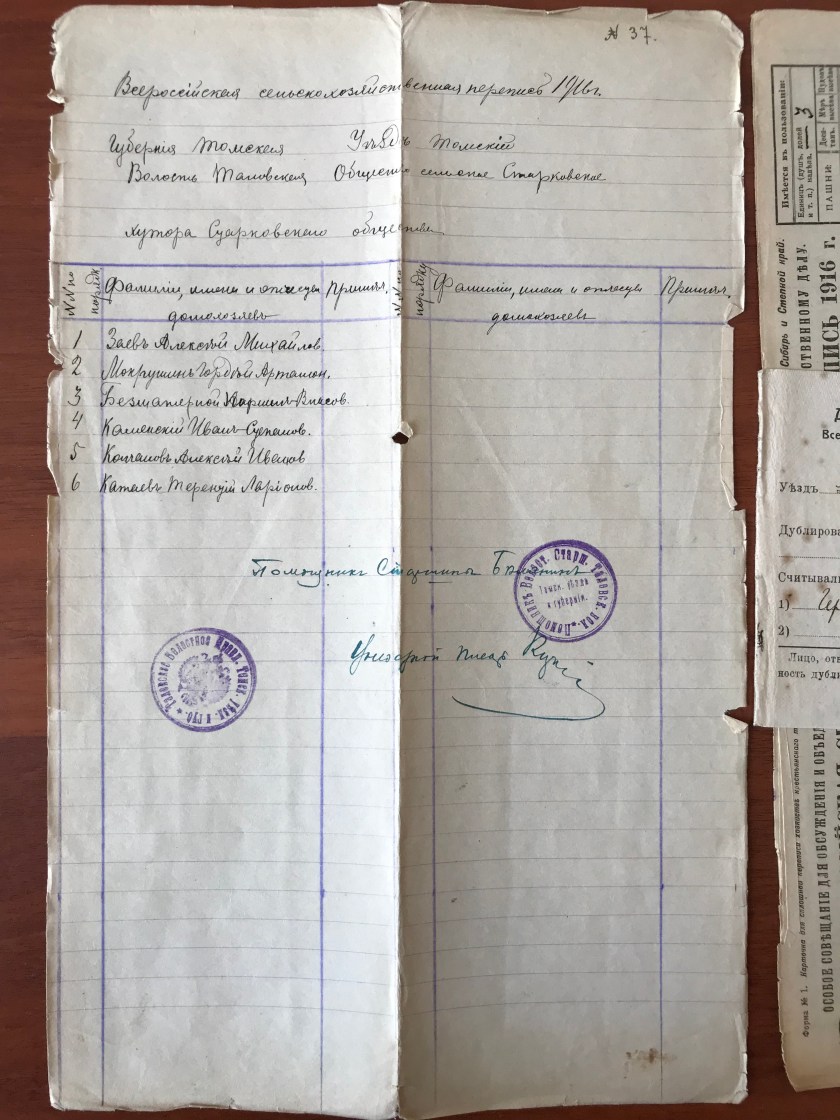 № 37.
Всероссійская сельскохозяйственная перепись 1916 г.
Губернія Томская Уѣздъ Томскій
Волость Таловская Общество сельское Старковское
хутора Старковскаго общества
№№ по порядк Фамиліи, имена и отчества домохозяевъ Примѣч. №№ по порядку Фамиліи, имена и отчества домохозяевъ Примѣч.
1 Заевъ Алексѣй Михайлов
2 Мокрушинъ Гордѣй Артамон.
3 Безматерной Власов.
4 Каменскій Иванъ Степанов.
5 Алексѣй Иванов
6 Катаевъ Терентій Ларіонов.
Помощникъ Старшины
Волост. Старш. Таловск. вол. Помощникъ
Томск. уѣзда
и губерніи.
писарь
Таловское Волостное Правл. Томск. уѣзд. и губ.
Имѣется въ пользованіи:
Единицъ (душъ, долей и т. п.) надѣла. 3
ПАШНИ:
Сибирь и Степной край.
СТВЕННОМУ ДѢЛУ.
ПИСЬ 1916 г.
Все
Уѣздъ
Дублирова
Считывали
1)
2)
Лицо, отв
ность дубли
Форма № 1. Карточка для сплошной переписи хозяйствъ крестьянскаго т
ОСОБОЕ СОВѢЩАНІЕ ДЛЯ ОБСУЖДЕНІЯ И ОБЪЕД